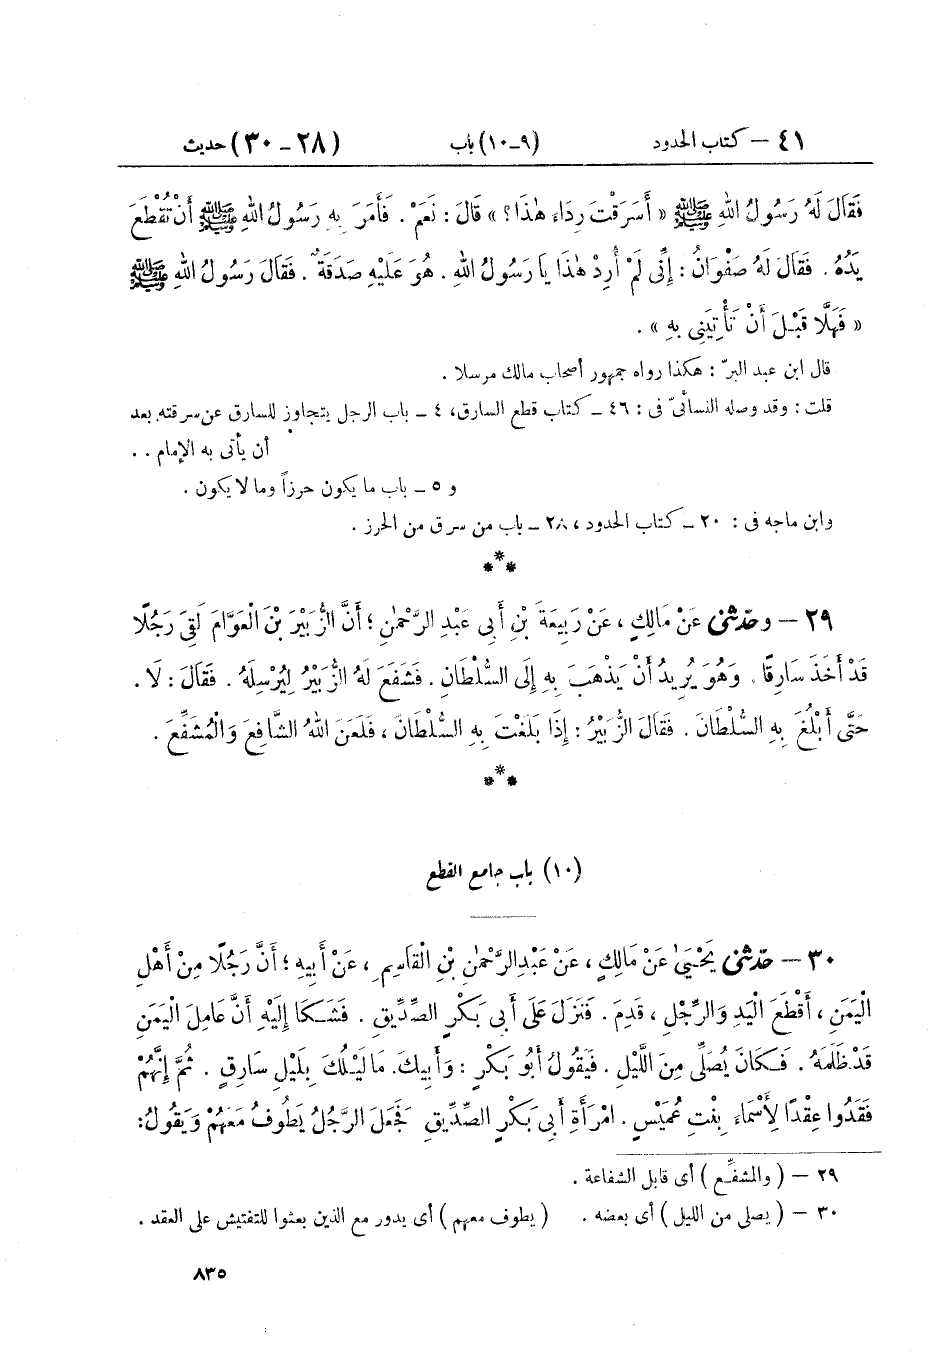 ٤١ — كتاب الحدود (٩-١٠) باب (٢٨ - ٣٠) حديث
فَقَالَ لَهُ رَسُولُ اللهِ ﷺ « أَسَرَقْتَ رِدَاءَ هٰذَا؟ » قَالَ : نَعَمْ . فَأَمَرَ بِهِ رَسُولُ اللهِ ﷺ أَنْ تُقْطَعَ
يَدُهُ . فَقَالَ لَهُ صَفْوَانُ : إِنِّى لَمْ أُرِدْ هٰذَا يَا رَسُولَ اللهِ . هُوَ عَلَيْهِ صَدَقَةٌ . فَقَالَ رَسُولُ اللهِ ﷺ
« فَهَلَّا قَبْلَ أَنْ تَأْتِيَنِى بِهِ » .
قال ابن عبد البرّ : هكذا رواه جمهور أصحاب مالك مرسلا .
قلت : وقد وصله النسائىّ فى : ٤٦ ــ كتاب قطع السارق، ٤ ــ باب الرجل يتجاوز للسارق عن سرقته بعد
أن يأتى به الإمام . .
و ٥ ــ باب ما يكون حرزاً وما لا يكون .
وابن ماجه فى : ٢٠ ــ كتاب الحدود ، ٢٨ ــ باب من سرق من الحرز .
***
٢٩ — وحدّثنى عَنْ مَالِكٍ ، عَنْ رَبِيعَةَ بْنِ أَبِى عَبْدِ الرَّحْمٰنِ ؛ أَنَّ الزُّبَيْرَ بْنَ الْعَوَّامَ لَقِىَ رَجُلًا
قَدْ أَخَذَ سَارِقًا . وَهُوَ يُرِيدُ أَنْ يَذْهَبَ بِهِ إِلَى السُّلْطَانِ . فَشَفَعَ لَهُ الزُّبَيْرُ لِيُرْسِلَهُ . فَقَالَ : لَا .
حَتَّى أَبْلُغَ بِهِ السُّلْطَانَ . فَقَالَ الزُّبَيْرُ : إِذَا بَلَغْتَ بِهِ السُّلْطَانَ ، فَلَعَنَ اللهُ الشَّافِعَ وَالْمُشَفِّعَ .
***
(١٠) باب جامع القطع
٣٠ — حدّثنى يَحْيَىٰ عَنْ مَالِكٍ ، عَنْ عَبْدِ الرَّحْمٰنِ بْنِ الْقَاسِمِ ، عَنْ أَبِيهِ ؛ أَنَّ رَجُلًا مِنْ أَهْلِ
الْيَمَنِ ، أَقْطَعَ الْيَدِ وَالرِّجْلِ ، قَدِمَ . فَنَزَلَ عَلَى أَبِى بَكْرٍ الصِّدِّيقِ . فَشَكَا إِلَيْهِ أَنَّ عَامِلَ الْيَمَنِ
قَدْ ظَلَمَهُ . فَكَانَ يُصَلِّى مِنَ اللَّيْلِ . فَيَقُولُ أَبُو بَكْرٍ : وَأَبِيكَ. مَا لَيْلُكَ بِلَيْلِ سَارِقٍ . ثُمَّ إِنَّهُمْ
فَقَدُوا عِقْدًا لِأَسْمَاءَ بِنْتِ عُمَيْسٍ . امْرَأَةِ أَبِى بَكْرٍ الصِّدِّيقِ فَجَعَلَ الرَّجُلُ يَطُوفُ مَعَهُمْ وَيَقُولُ:
٢٩ — ( والمشفِّع ) أى قابل الشفاعة .
٣٠ — ( يصلى من الليل ) أى بعضه . ( يطوف معهم ) أى يدور مع الذين بعثوا للتفتيش على العقد .
٨٣٥